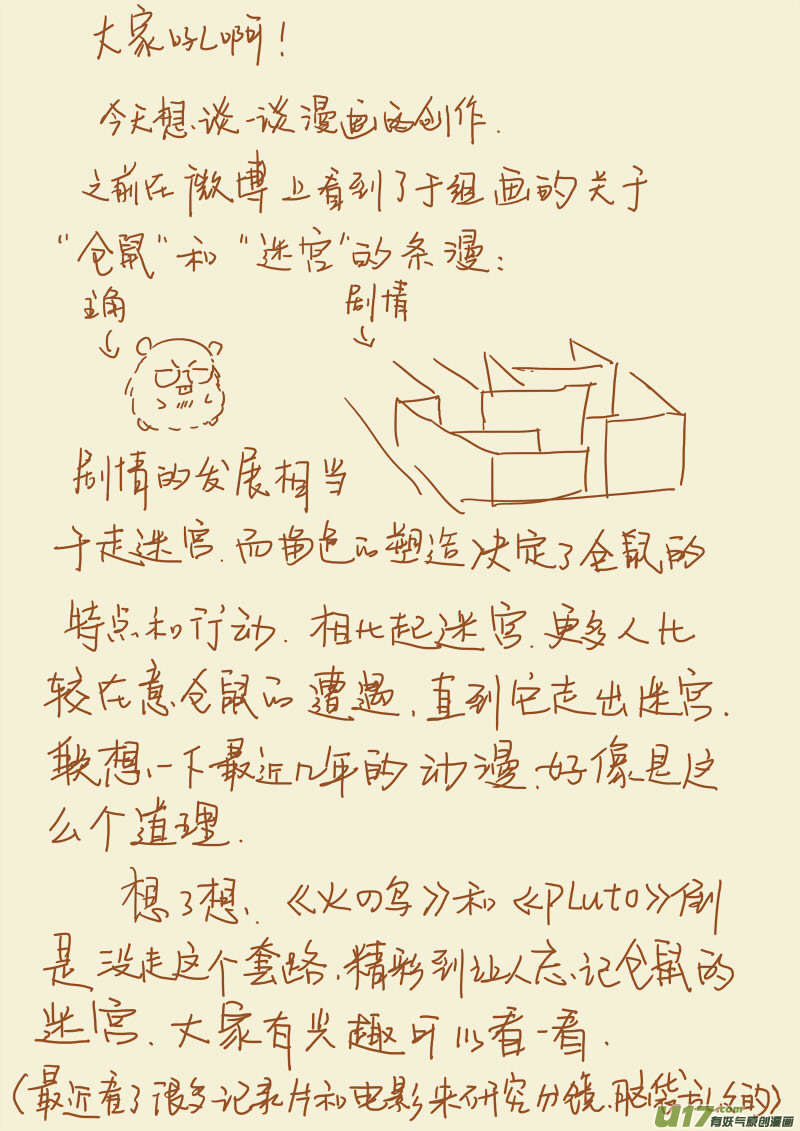 大家好啊!
今天想谈一谈漫画的创作.
之前在微博上看到了于组画的关于
“仓鼠”和“迷宫”的条漫:
主角
剧情
剧情的发展相当
于走迷宫.而角色的塑造决定了仓鼠的
特点和行动.相比起迷宫.更多人比
较在意仓鼠的遭遇,直到它走出迷宫.
联想一下最近几年的动漫.好像是这
么个道理.
想了想.《火の鸟》和《PLuto》倒
是没走这个套路.精彩到让人忘记仓鼠的
迷宫.大家有兴趣可以看一看.
(最近看了很多记录片和电影来研究分镜.脑袋都大的)
u17.com
有妖气原创漫画